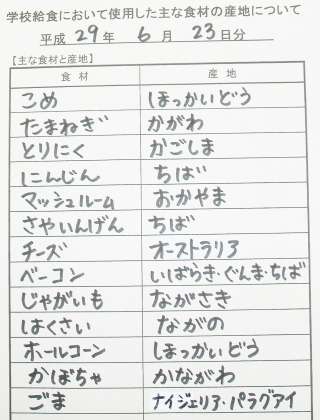 学校給食において使用した主な食材の産地について
平成 29 年 6 月 23 日分
【主な食材と産地】
食 材 産 地
こめ ほっかいどう
たまねぎ かがわ
とりにく かごしま
にんじん ちば
マッシュルーム おかやま
さやいんげん ちば
チーズ オーストラリア
ベーコン いばらき・ぐんま・ちば
じゃがいも ながさき
はくさい ながの
ホールコーン ほっかいどう
かぼちゃ かながわ
ごま ナイジェリア・パラグアイ